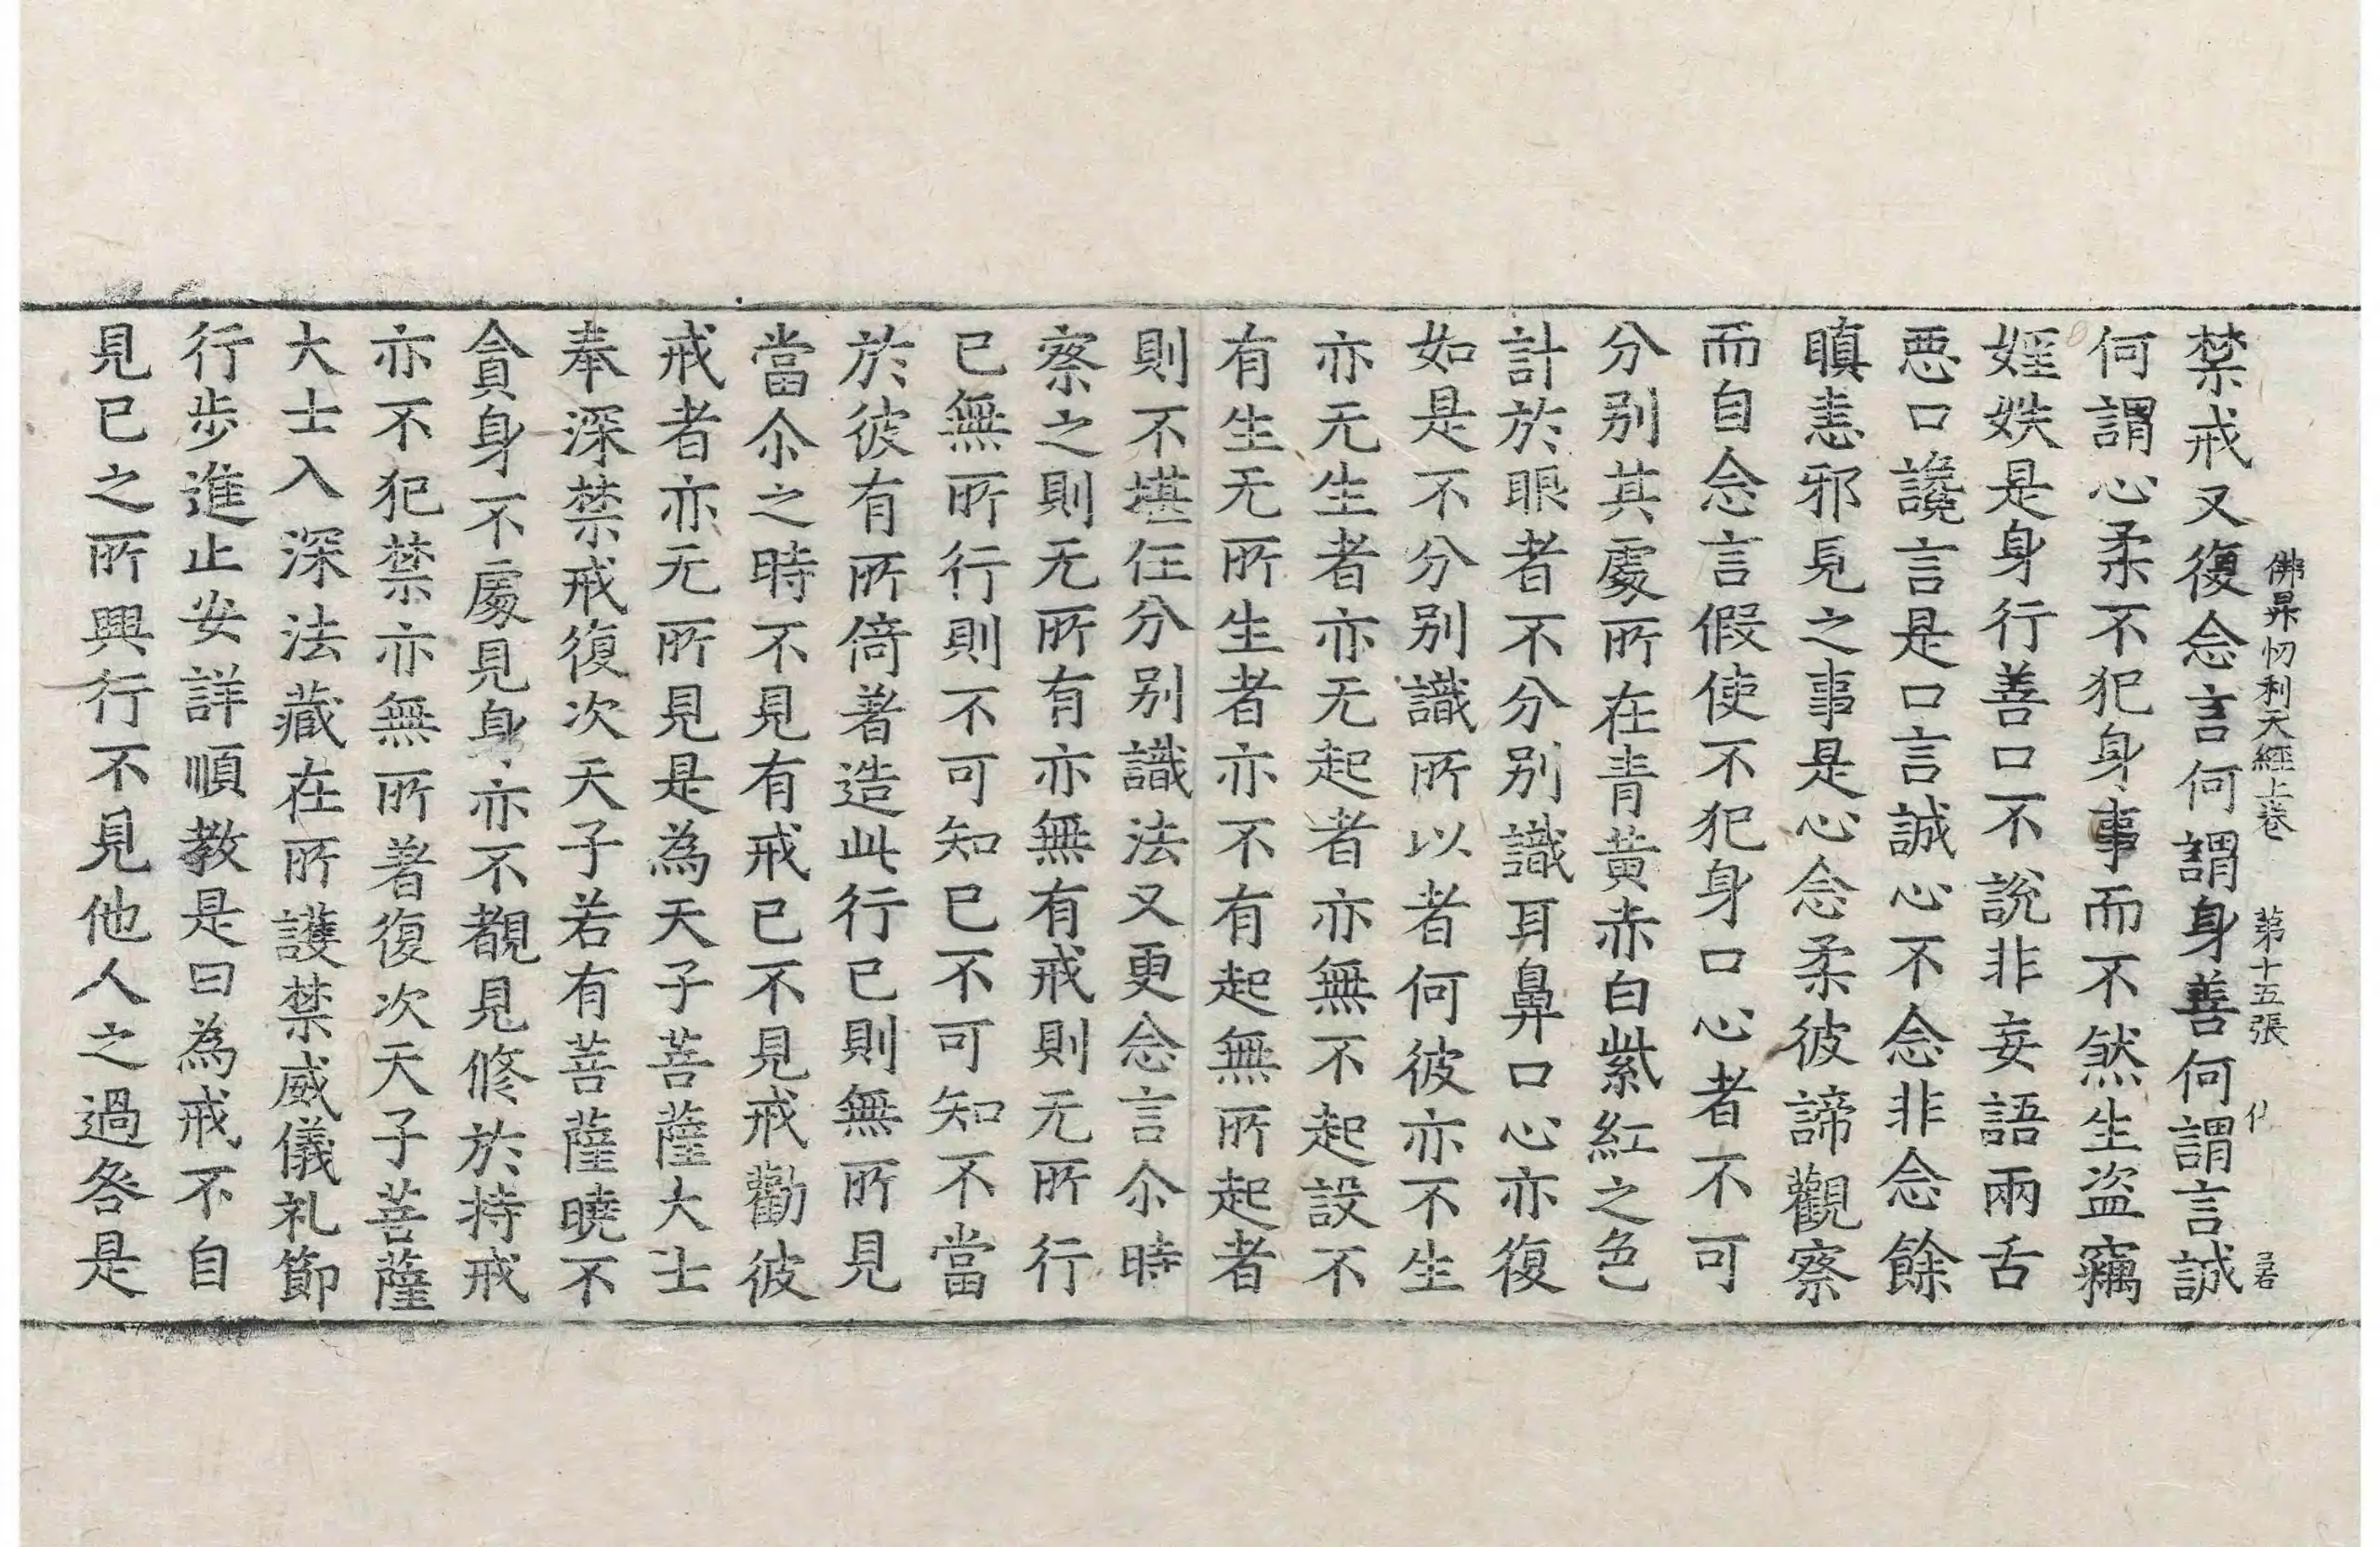 佛昇忉利天經上卷 第十五張 伊
禁戒又復念言何謂身善何謂言誠
何謂心柔不犯身事而不煞生盜竊
婬妷是身行善口不說非妄語兩舌
惡口讒言是口言誠心不念非念餘
瞋恚邪見之事是心念柔彼諦觀察
而自念言假使不犯身口心者不可
分別其處所在青黃赤白紫紅之色
計於眼者不分別識耳鼻口心亦復
如是不分別識所以者何彼亦不生
亦无生者亦无起者亦無不起設不
有生无所生者亦不有起無所起者
則不堪任分別識法又更念言尒時
察之則无所有亦無有戒則无所行
已無所行則不可知已不可知不當
於彼有所倚著造此行已則無所見
當尒之時不見有戒已不見戒勸彼
戒者亦无所見是為天子菩薩大士
奉深禁戒復次天子若有菩薩曉不
貪身不處見身亦不覩見修於持戒
亦不犯禁亦無所著復次天子菩薩
大士入深法藏在所護禁威儀礼節
行步進止安詳順教是曰為戒不自
見已之所興行不見他人之過咎是